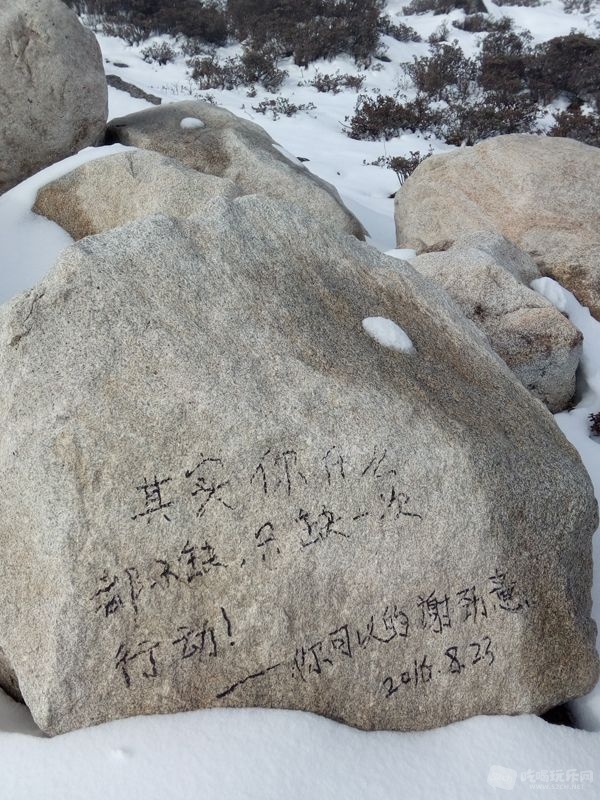 其实你什么
都不缺，只缺一次
行动！
——你可以的谢劲意
2016.8.23
咕嘟玩乐网